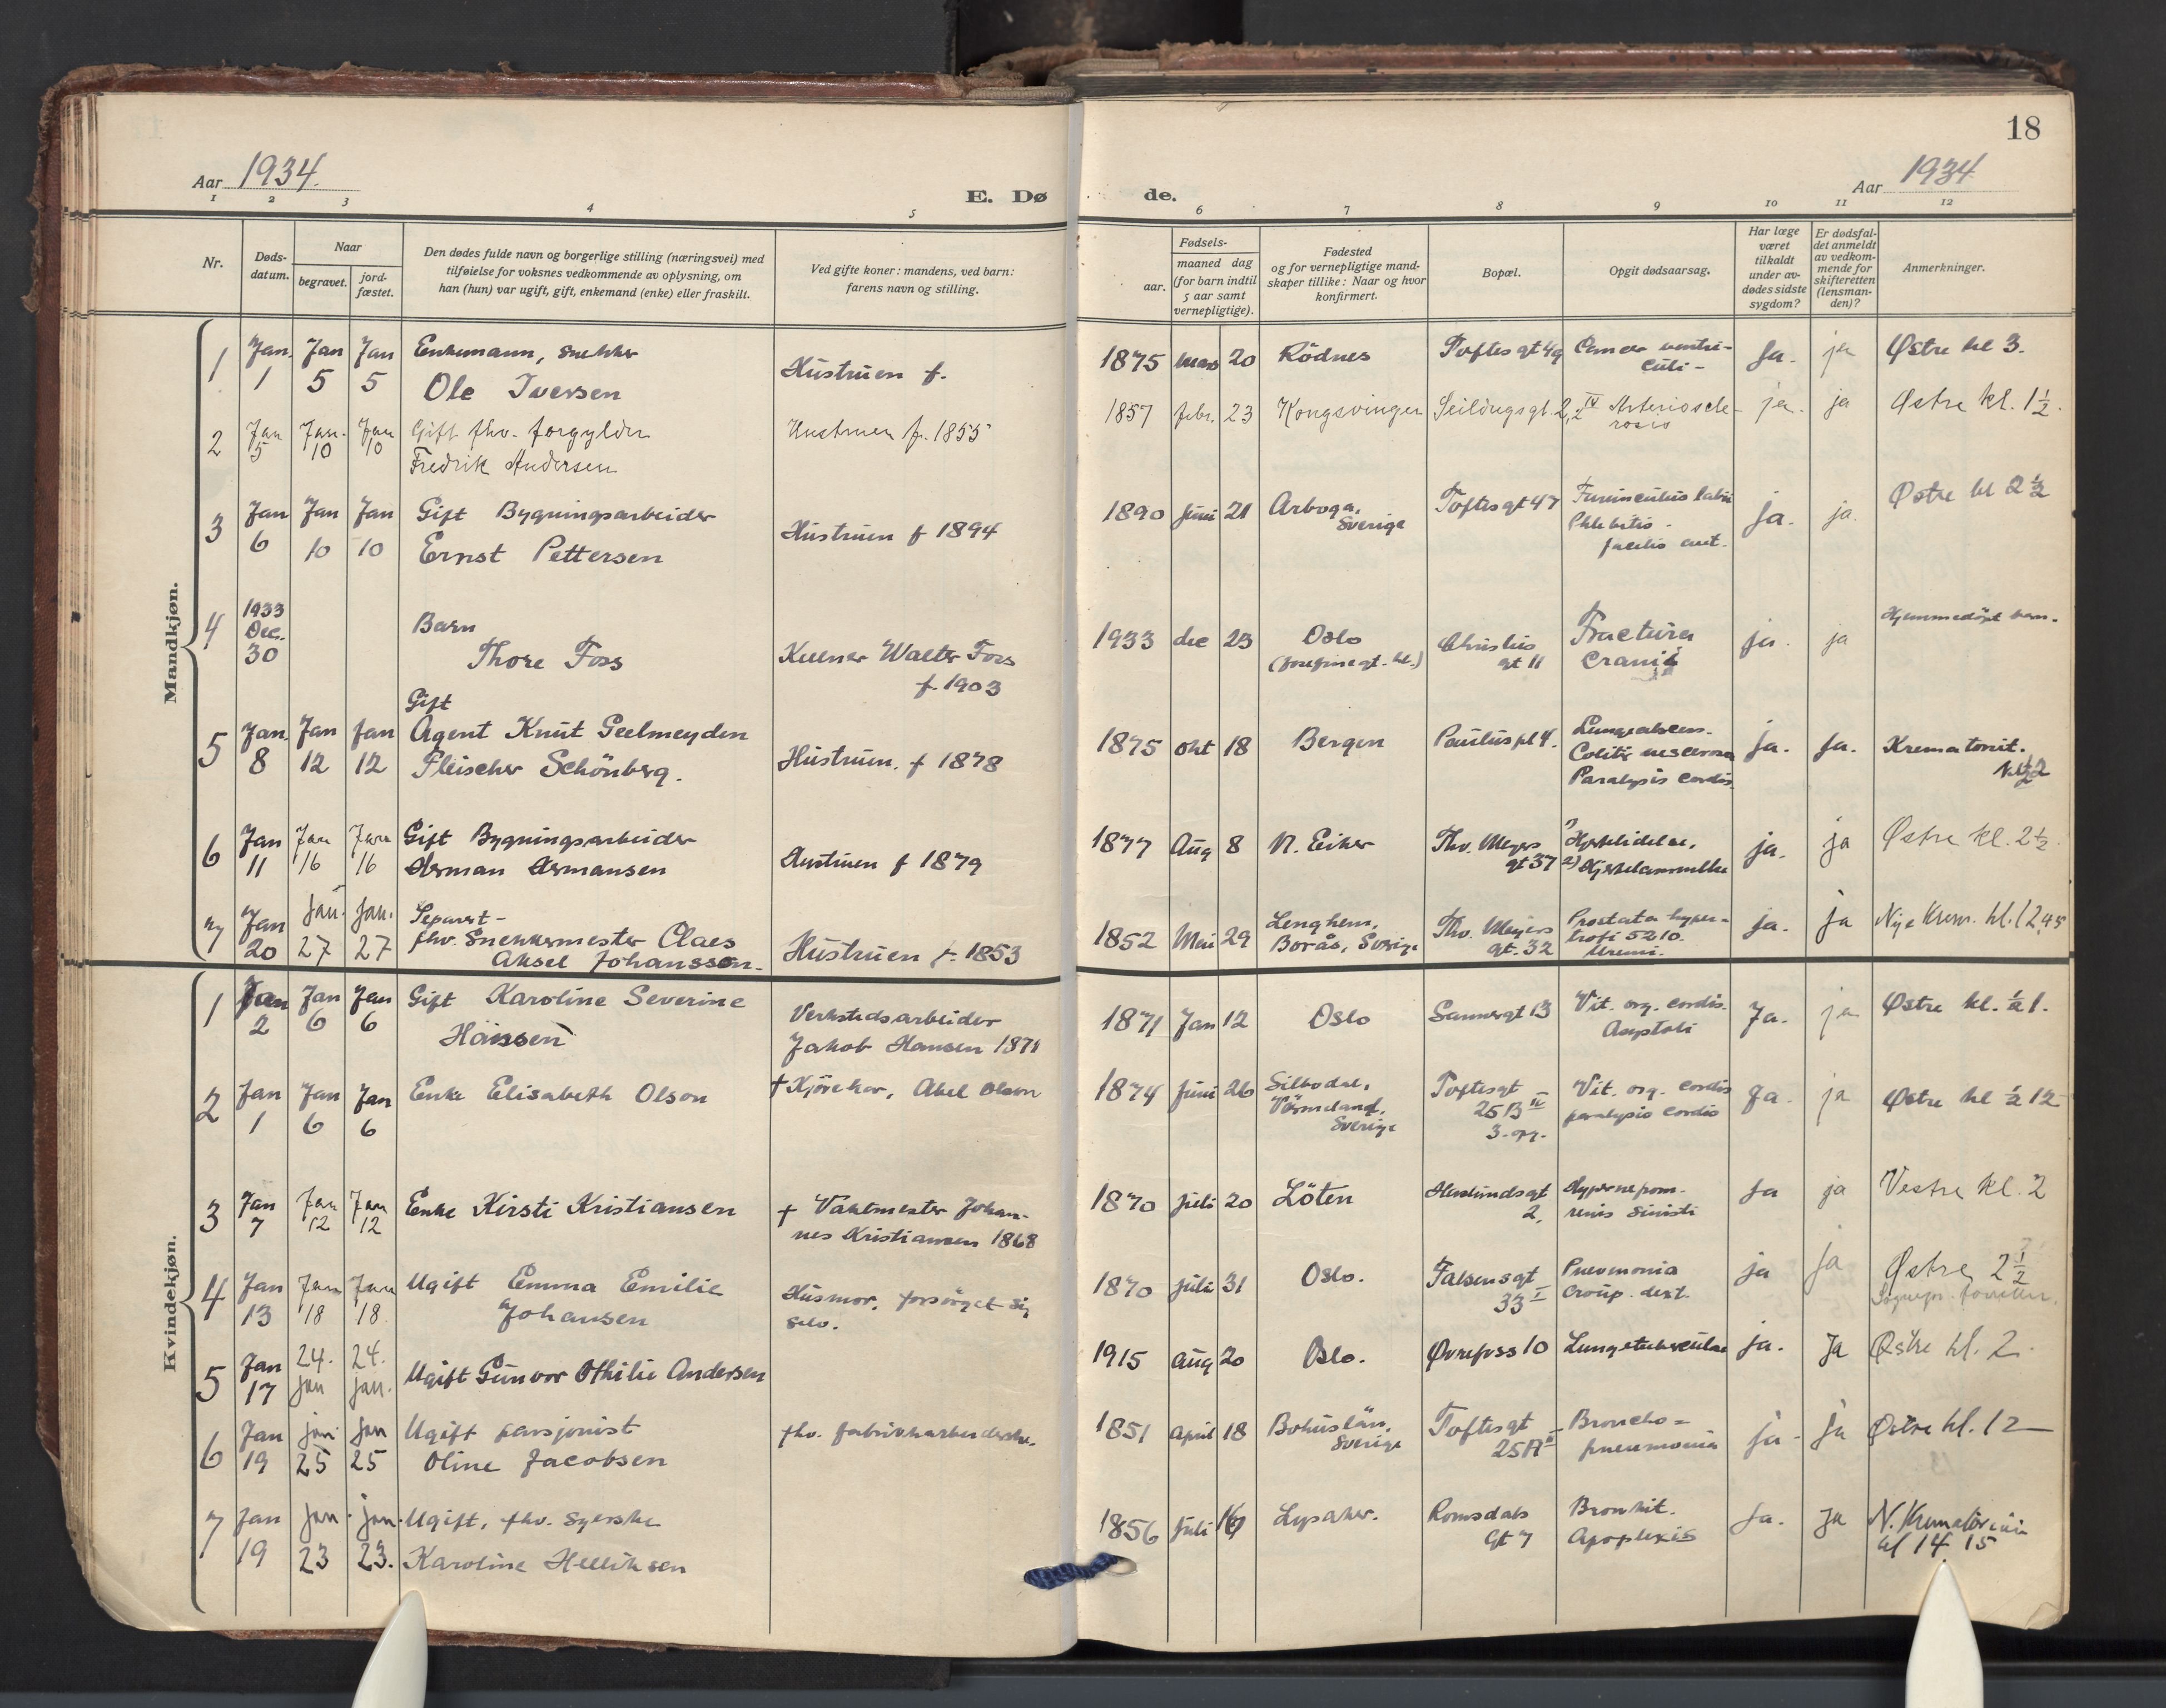 18
Aar 1934.
E. Dø
de.
Aar 1934
1 2 3 4 5 6 7 8 9 10 11 12
Nr.
Døds-
datum.
Naar
begravet.
jord-
fæstet.
Den dødes fulde navn og borgerlige stilling (næringsvei) med
tilføielse for voksnes vedkommende av oplysning, om
han (hun) var ugift, gift, enkemand (enke) eller fraskilt.
Ved gifte koner: mandens, ved barn:
farens navn og stilling.
Fødsels-
aar.
maaned dag
(for barn indtil
5 aar samt
vernepligtige).
Fødested
og for vernepligtige mand-
skaper tillike: Naar og hvor
konfirmert.
Bopæl.
Opgit dødsaarsag.
Har læge
været
tilkaldt
under av-
dødes sidste
sygdom?
Er dødsfal-
det anmeldt
av vedkom-
mende for
skifteretten
(lensman-
den)?
Anmerkninger.
Mandkjøn.
1 Jan. 1 Jan 5 Jan 5
Enkemann, snekker
Ole Iversen
Hustruen f.
1875 mars 20 Rödnes Toftes gt 49 Cancer ventri-
culi - Ja. ja Østre kl 3.
2 Jan 5 Jan. 10 Jan 10
Gift fhv. forgylder
Fredrik Andersen
Hustruen f. 1855
1857 febr. 23 Kongsvinger Seildugsgt. 2, IV Arterioscle-
rosis ja. ja Østre kl. 1½.
3 Jan 6 Jan 10 Jan 10
Gift Bygningsarbeider
Ernst Pettersen
Hustruen f 1894
1890 Juni 21 Arboga,
Sverige Toftesgt 47 Furunculus labii
Phlebitis -
facilis ja. ja. Østre kl 2½
4 1933
Dec.
30
Barn
Thore Foss
Kelner Walter Foss
f. 1903
1933 dec 23 Oslo
(Josefinegt. kl.) Christies
gt 11 Fractura
cranii ja. ja Hjemmedöpt barn.
5 Jan. 8 Jan 12 Jan 12
Gift
Agent Knut Geelmeyden
Fleischer Schönberg.
Hustruen. f 1878
1875 okt 18 Bergen Pauluspl 4. Lungeabscess.
Colitis ulcerosa
Paralysis cordis. ja. Ja. Krematoriet.
6 Jan 11 Jan 16 Jan 16
Gift Bygningsarbeider
Herman Hermansen
Hustruen f 1879
1877 Aug 8 N. Eiker Thv. Meyers
gt 37 Hjertelidelse,
2) Hjertelammelse ja. ja Østre kl. 2½.
7 Jan 20 Jan. 27 Jan. 27
Separert -
fhv. Snekkermester Claes
Aksel Johansson.
Hustruen f. 1853
1852 Mai 29 Lenghem,
Borås, Sverige Thv. Meyers
gt. 32 Prostata hyper-
trofi 5210.
Uremi. ja. ja Nye Krem. kl. 12.45
Kvindekjøn.
1 Jan 2 Jan 6 Jan 6
Gift Karoline Severine
Hansen
Verkstedsarbeider
Jakob Hansen 1871
1871 Jan 12 Oslo Sannergt 13 Vit. org. cordis.
Asystoli Ja. ja Østre kl. ½ 1.
2 Jan 1 Jan 6 Jan 6
Enke Elisabeth Olson
† Kjörekar, Abel Olson
1874 Juni 26 Silbodal,
Värmeland.
Sverige Toftesgt
25 B IV
3. opg. Vit. org. cordis
paralysis cordis Ja. ja Østre kl ½ 12
3 Jan 7 Jan 12 Jan 12
Enke Kirsti Kristiansen
† Vaktmester Johan-
nes Kristiansen 1868
1870 Juli 20 Löten Herslundsgt
2, Hypernefrom.
renis sinistri Ja ja Vestre kl. 2
4 Jan 13 Jan 18 Jan 18.
Ugift Emma Emilie
Johansen
Husmor, forsörget sig
selv.
1870 juli 31 Oslo. Falsensgt
33 I Pneumonia
croup. dext. ja Ja Østre 2½
5 Jan 17 24. jan 24. jan.
Ugift Gunvor Othilie Andersen
1915 aug 20 Oslo. Øvrefoss 10 Lungetuberculose ja. Ja Østre kl. 2.
6 Jan 19 jan. 25 jan 25
Ugift pensjonist
Oline Jacobsen
fhv. fabrikkarbeiderske.
1851 april 18 Bohuslän,
Sverige Toftesgt
25 A II Broncho =
pneumonia ja - Ja Østre kl. 12
7 Jan 19 jan. 23 jan. 23.
Ugift, fhv. syerske
Karoline Helliksen
1856 Juli Lysaker. Romsdals
gt 7 Bronkit.
Apoplexis Ja. Ja N. Krematorium
kl 14 15